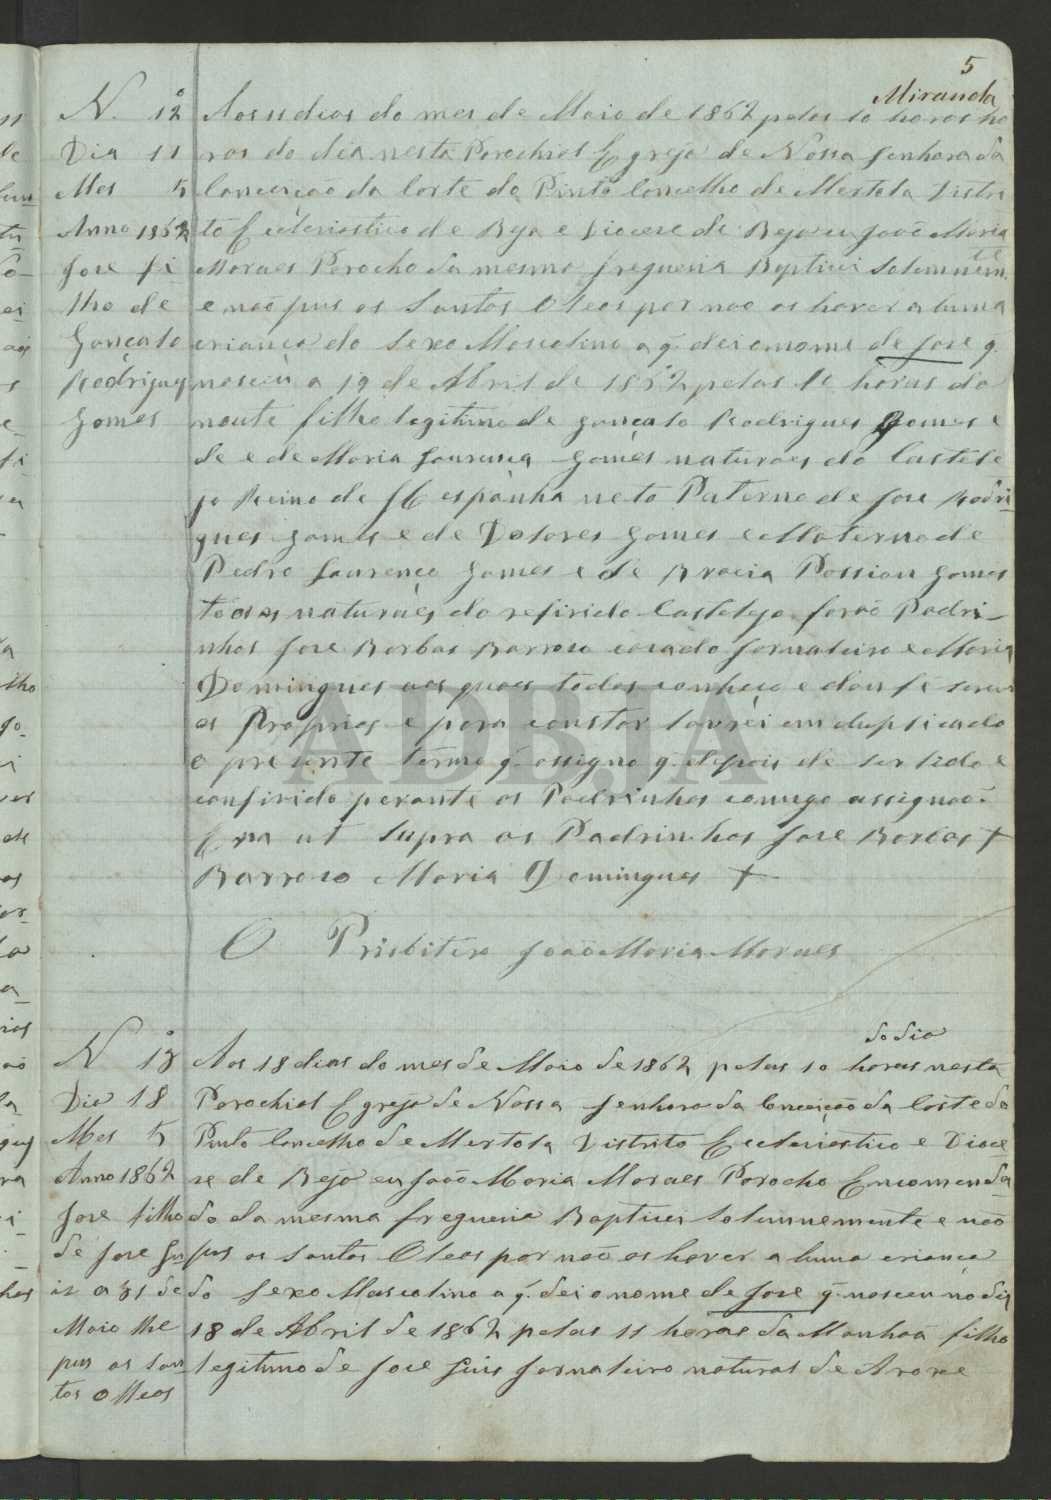 5
Miranda
N.º 12
Dia 11
Mes 5
Anno 1862
Jose fi
lho de
Gonçalo
Rodrigues
Gomes
Aos 11 dias do mes de Maio de 1862 pelas 10 horas ho
ras do dia nesta Parochial Egreja de Nossa Senhora da
Conceição da Corte do Pinto Concelho de Mertola Distri
to Ecclesiastico de Beja e Diocese de Beja eu João Maria
Moraes Parocho da mesma freguesia Baptizei Solemnente
e não pus os Santos Oleos por não os haver a huma
criança do Sexo Masculino a q. dei o nome de Jose q.
nasceu a 19 de Abril de 1862 pelas 11 horas da
noute filho legitimo de Gonçalo Rodrigues Gomes e
de e de Maria Lourença Gomes naturaes do Castele
jo Reino de Hespanha neto Paterno de Jose Rodri-
gues Gomes e de Dolores Gomes e Materno de
Pedro Lourenço Gomes e de Gracia Gomes
todos naturaes do referido Castelejo forão Padri-
nhos Jose Borbas Barroso casado e Maria
Domingues aos quaes todos conheço e dou fé serem
os Proprios e para constar lavrei em duplicado
o presente termo q. assigno q. depois de ser lido e
confirido perante os Padrinhos comigo assignão.
Era ut Supra os Padrinhos Jose Borbas +
Barroso Maria Domingues +
O Prisbitero João Maria Moraes
N.º 13
Dia 18
Mes 5
Anno 1862
Jose filho
de Jose Lu
is a 31 de
Maio lhe
pus os San
tos Olleos
do dia
Aos 18 dias do mes de Maio de 1862 pelas 10 horas nesta
Parochial Egreja de Nossa Senhora da Conceição da Corte do
Pinto Concelho de Mertola Distrito Ecclesiastico e Dioce
se de Beja eu João Maria Moraes Parocho Encomenda
do da mesma freguesia Baptizei Solemnemente e não
pus os Santos Oleos por não os haver a huma criança
do Sexo Masculino a q. dei o nome de Jose q. nasceu no dia
18 de Abril de 1862 pelas 11 horas da Manhoã filho
legitimo de Jose Luis natural de
ADBJA